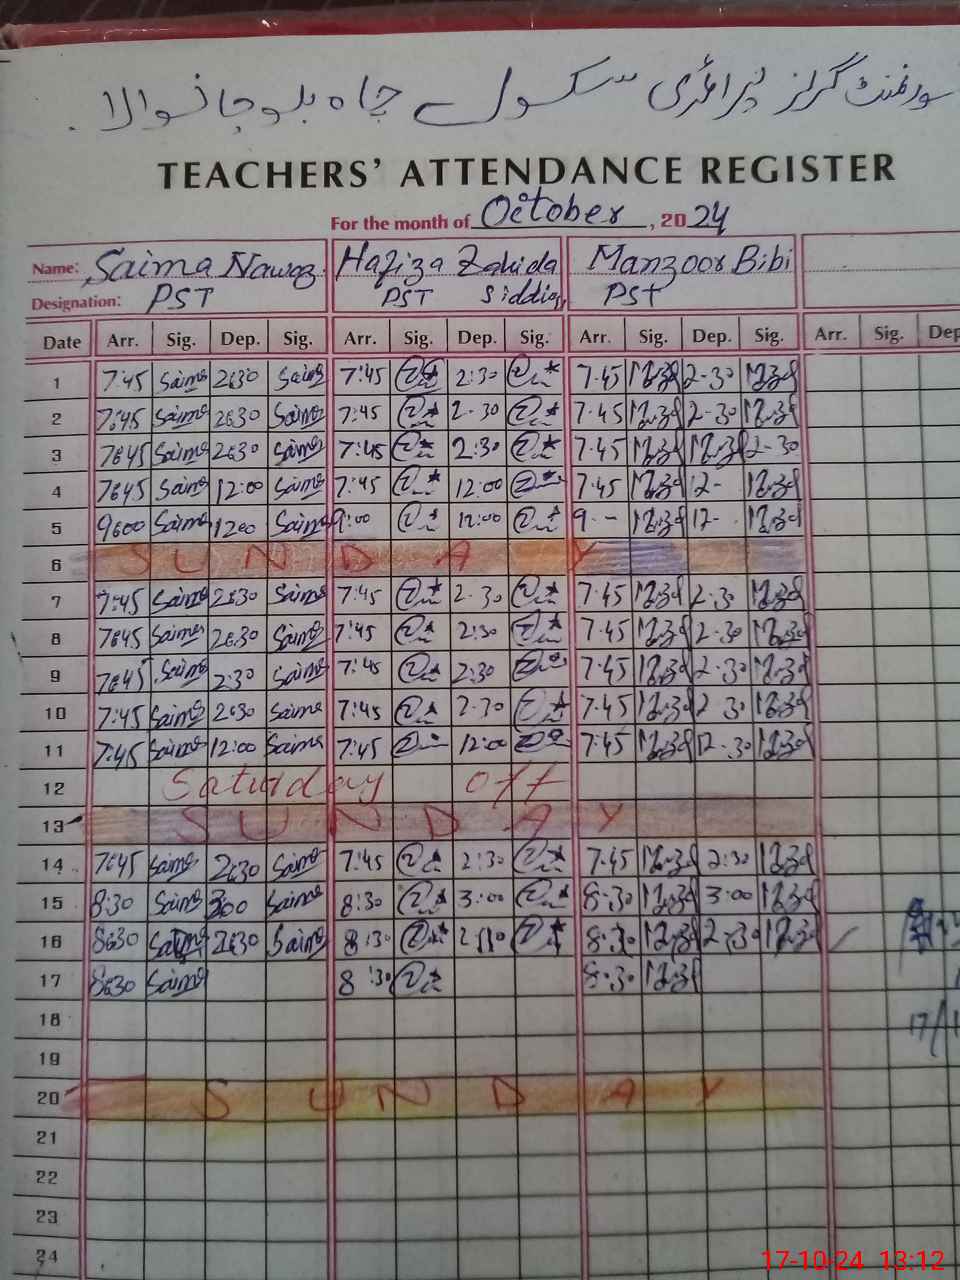 گورنمنٹ گرلز پرائمری سکول چاہ بلوچانوالا
TEACHERS' ATTENDANCE REGISTER
For the month of October, 2024
Name: Saima Nawaz Hafiza Zahida Siddiq Manzoor Bibi
Designation: PST PST PST
Date Arr. Sig. Dep. Sig. Arr. Sig. Dep. Sig. Arr. Sig. Dep. Sig. Arr. Sig. Dep
1 7:45 Saima 2:30 Saima 7:45 2:30 7.45 2-30
2 7:45 Saima 2:30 Saima 7:45 2-30 7.45 2-30
3 7:45 Saima 2:30 Saima 7:45 2:30 7.45 2-30
4 7:45 Saima 12:00 Saima 7:45 12:00 7.45 12-
5 9:00 Saima 12:00 Saima 9:00 12:00 9-- 12-
6 SUNDAY
7 7:45 Saima 2:30 Saima 7:45 2-30 7.45 2-30
8 7:45 Saima 2:30 Saima 7:45 2:30 7.45 2-30
9 7:45 Saima 2:30 Saima 7:45 2:30 7.45 2-30
10 7:45 Saima 2:30 Saima 7:45 2-30 7.45 2 30
11 7:45 Saima 12:00 Saima 7:45 12:00 7.45 12-30
12 Saturday off
13 SUNDAY
14 7:45 Saima 2:30 Saima 7:45 2:30 7.45 2:30
15 8:30 Saima 3:00 Saima 8:30 3:00 8-30 3:00
16 8:30 Saima 2:30 Saima 8:30 8-30 2-30
17 8:30 Saima 8:30 8-30
18
19
20 SUNDAY
21
22
23
24
17-10-24 13:12